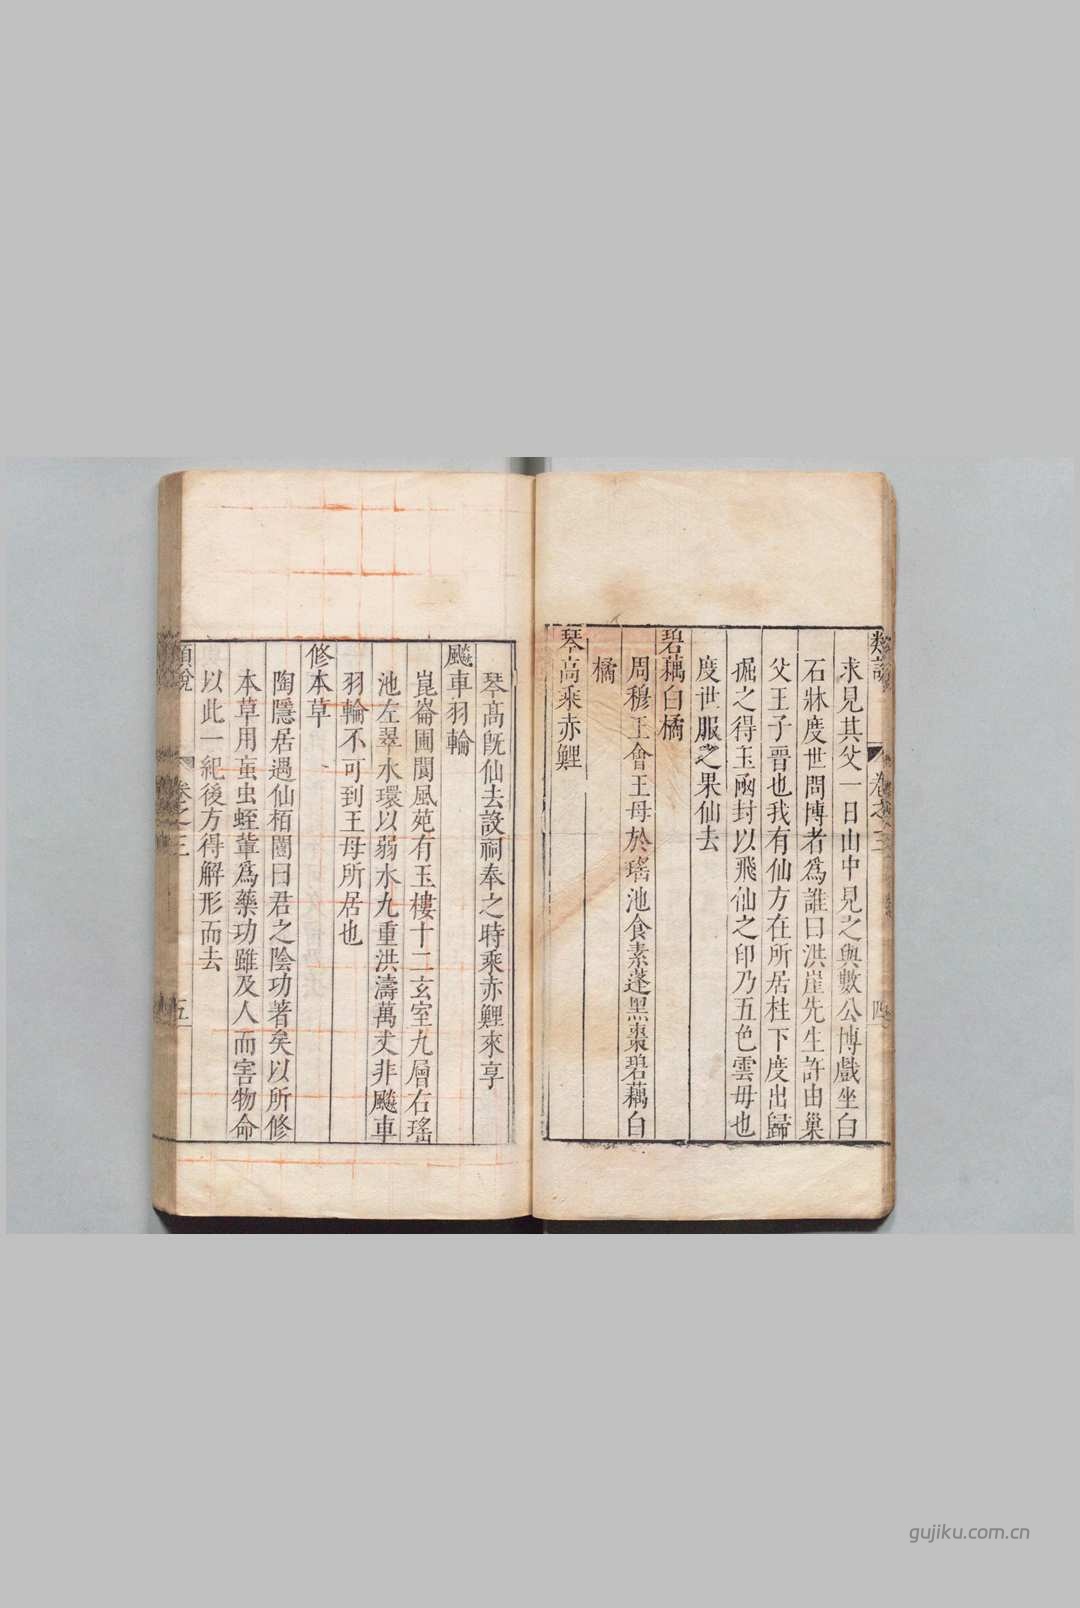 類說
卷之三
四
求見其父一日山中見之與數公博戲坐白
石牀度世問博者爲誰曰洪崖先生許由巢
父王子晉也我有仙方在所居柱下度出歸
掘之得玉函封以飛仙之印乃五色雲母也
度世服之果仙去
碧藕白橘
周穆王會王母於瑤池食素蓮黑棗碧藕白
橘
琴高乘赤鯉
琴髙旣仙去設祠奉之時乘赤鯉來享
飈車羽輪
崑崙圃閬風苑有玉樓十二玄室九層右瑤
池左翠水環以弱水九重洪濤萬丈非飈車
羽輪不可到王母所居也
修本草
陶隱居遇仙栢闓曰君之陰功著矣以所修
本草用䖟虫蛭輩爲藥功雖及人而害物命
以此一紀後方得解形而去
類說
卷之三
五
gujiku.com.cn